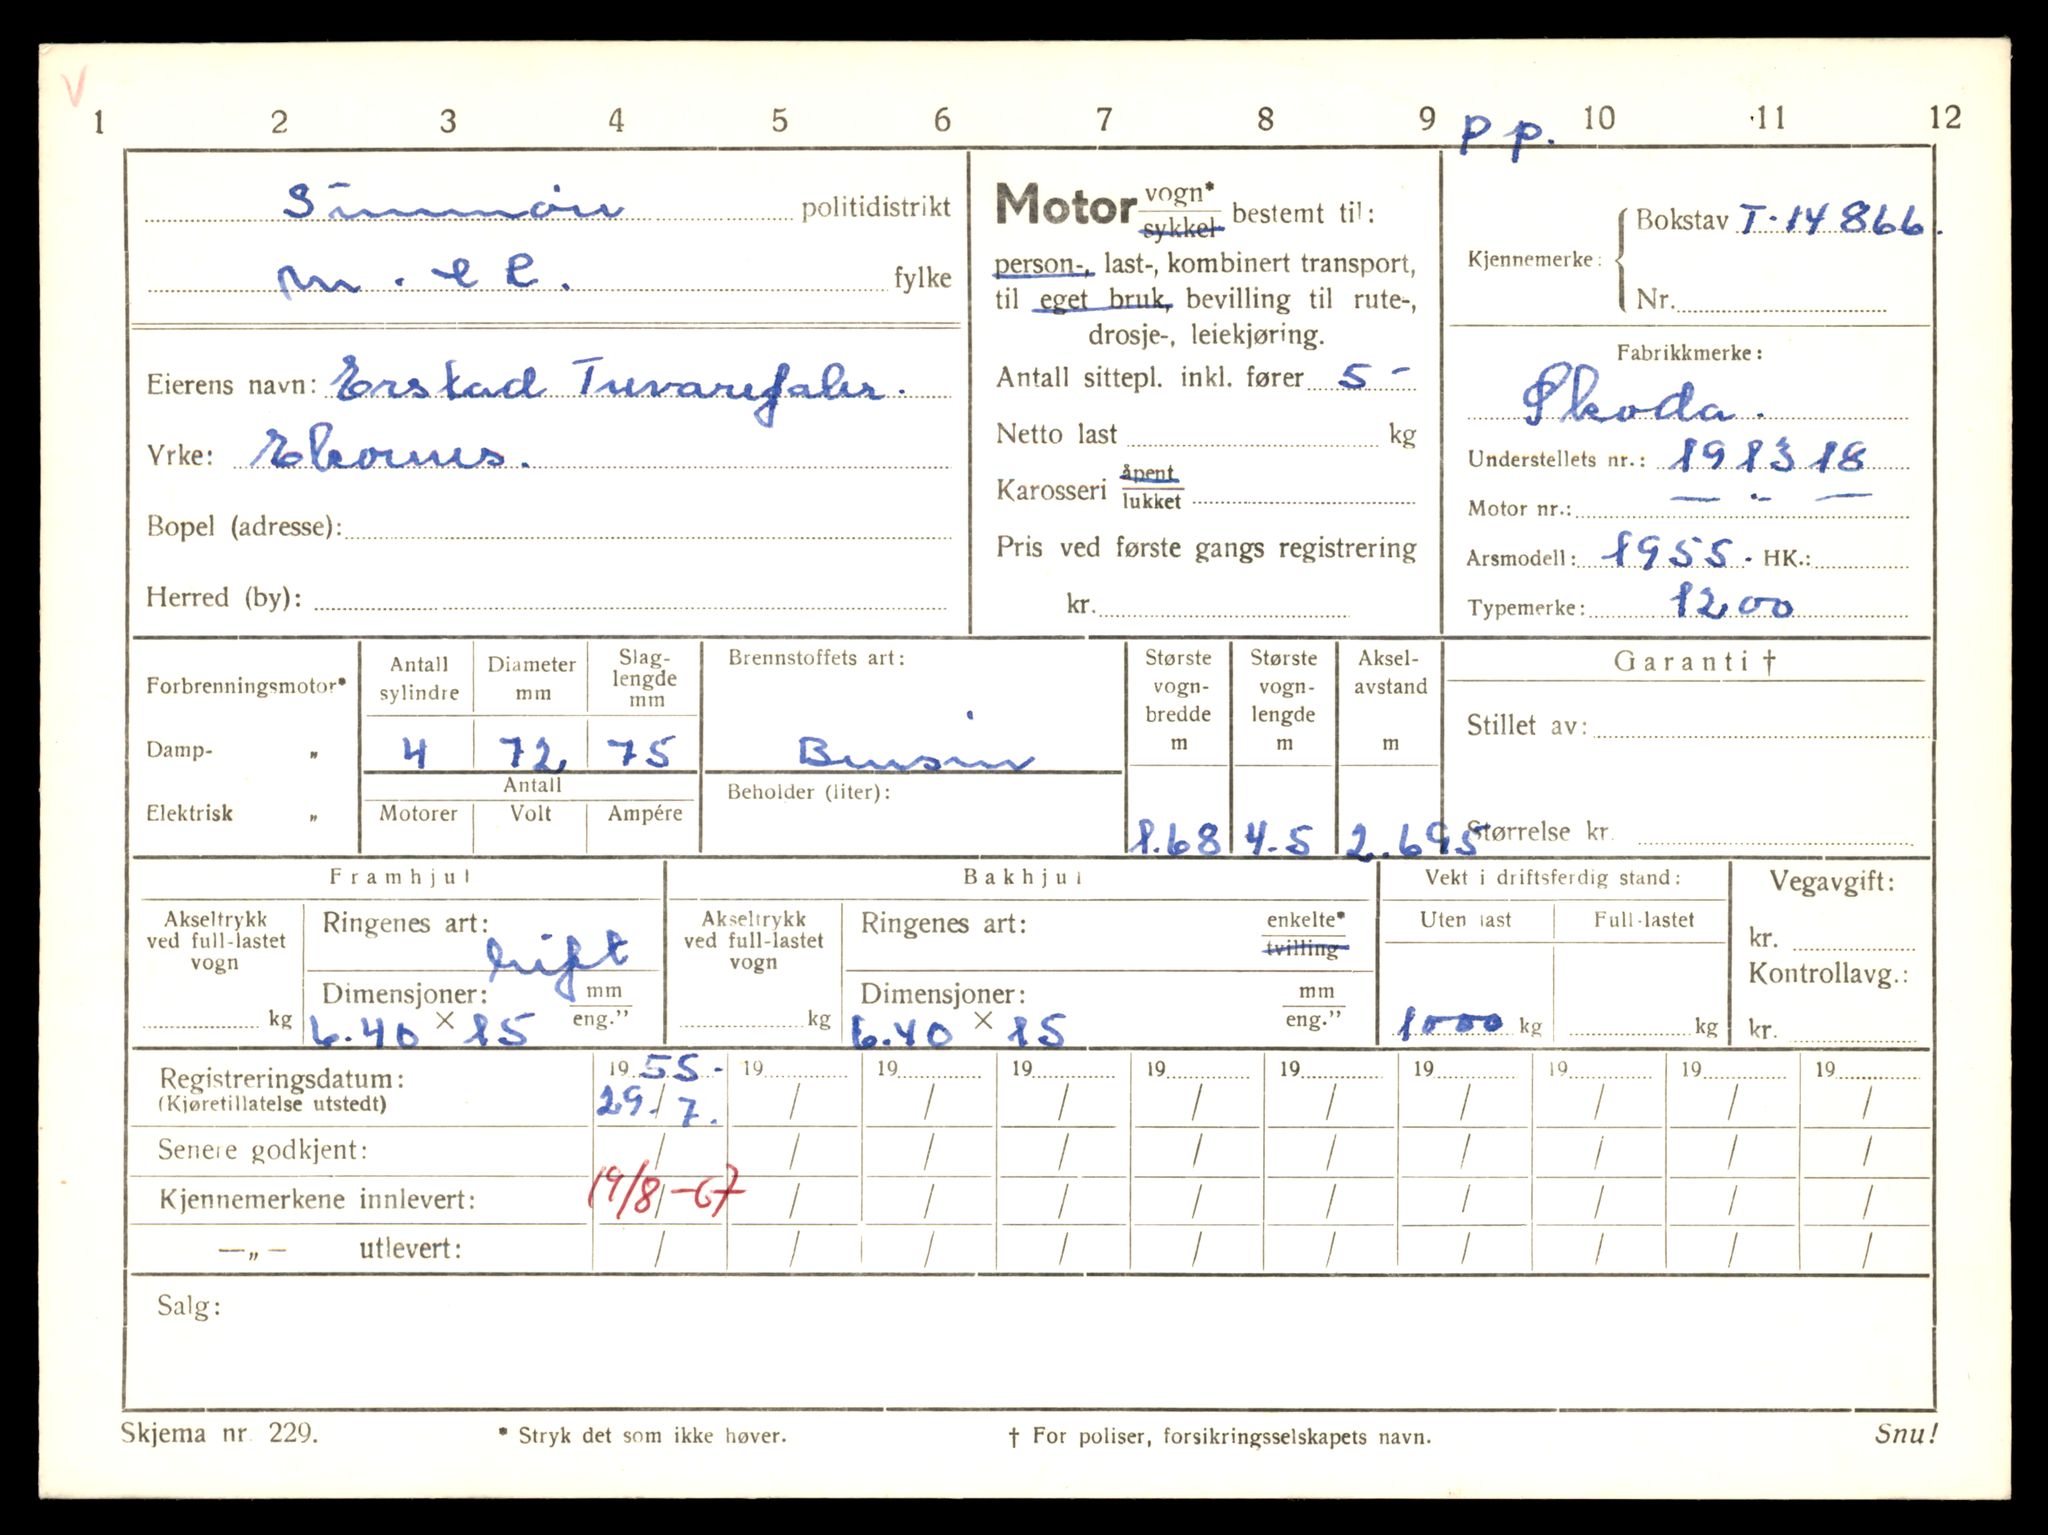 V
1 2 3 4 5 6 7 8 9 10 11 12
P p.
Sunnmøre politidistrikt
M. & R. fylke
Eierens navn: Erstad Trevarefabr.
Yrke: Ekornes.
Bopel (adresse):
Herred (by):
Motor vogn* / sykkel bestemt til:
person-, last-, kombinert transport,
til eget bruk, bevilling til rute-,
drosje-, leiekjøring.
Antall sittepl. inkl. fører 5 -
Netto last kg
Karosseri åpent / lukket
Pris ved første gangs registrering
kr.
Kjennemerke: Bokstav T-14866.
Nr.
Fabrikkmerke:
Skoda.
Understellets nr.: 191318
Motor nr.: — „ —
Arsmodell: 1955. HK.:
Typemerke: 1200
Forbrenningsmotor*
Damp- „
Elektrisk „
Antall sylindre
Diameter mm
Slag-lengde mm
4 72 75
Antall
Motorer Volt Ampére
Brennstoffets art:
Bensin
Beholder (liter):
Største vogn-bredde m
1.68
Største vogn-lengde m
4.5
Aksel-avstand m
2.695
Garanti †
Stillet av:
Størrelse kr.
Framhjul
Akseltrykk ved full-lastet vogn
kg
Ringenes art: luft
Dimensjoner: mm / eng."
6.40 × 15
Bakhjul
Akseltrykk ved full-lastet vogn
kg
Ringenes art: enkelte* / tvilling
Dimensjoner: mm / eng."
6.40 × 15
Vekt i driftsferdig stand:
Uten last Full-lastet
1000 kg kg
Vegavgift:
kr.
Kontrollavg.:
kr.
Registreringsdatum: 1955- 19 19 19 19 19 19 19 19 19
(Kjøretillatelse utstedt) 29./7. / / / / / / / / /
Senere godkjent: / / / / / / / / / /
Kjennemerkene innlevert: 19/8-67 / / / / / / / / /
—„— utlevert: / / / / / / / / / /
Salg:
Skjema nr. 229. * Stryk det som ikke høver. † For poliser, forsikringsselskapets navn. Snu!